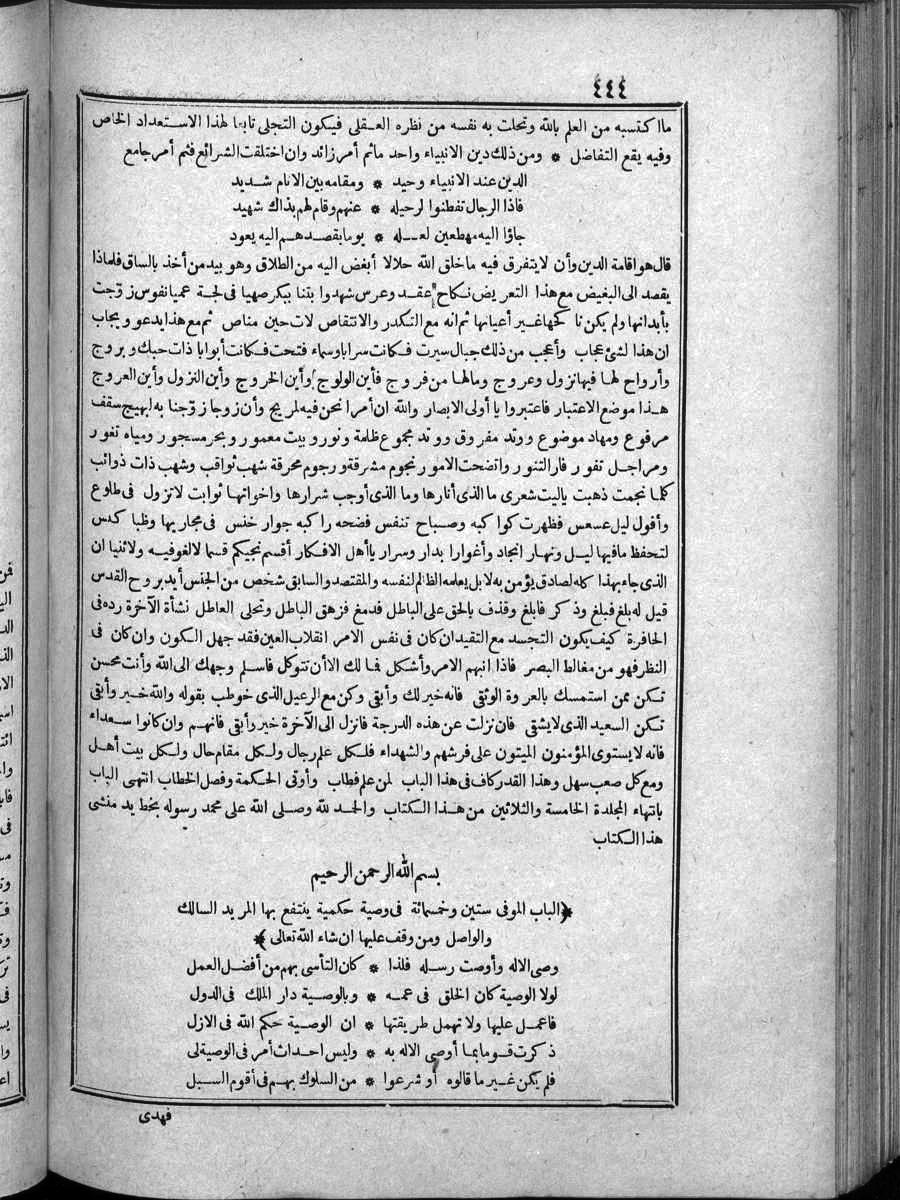 ٤٤٤
ما اكتسبه من العلم بالله وتحلت به نفسه من نظره العقلى فيكون التجلى تابعا لهذا الاستعداد الخاص
وفيه يقع التفاضل * ومن ذلك دين الانبياء واحد ماثم أمر زائد وان اختلفت الشرائع فثم أمر جامع
الدين عند الانبياء وحيد * ومقامه بين الانام شديد
فاذا الرجال تفطنوا لرحيله * عنهم وقام لهم بذاك شهيد
جاؤا اليه مهطعين لعــله * يوما بقصدهم اليه يعود
قال هو اقامة الدين وأن لا يتفرق فيه ما خلق الله حلالا أبغض اليه من الطلاق وهو بيد من أخذ بالساق فلماذا
يقصد الى البغيض مع هذا التعريض نكاح عقد وعرس شهدوا بتنا ببكر صهيا فى لجة عميا نفوس زوّجت
بأبدانها ولم يكن نا كحها غير أعيانها ثم انه مع التكدر والانتقاص لات حين مناص ثم مع هذا يدعو ويجاب
ان هذا لشئ عجاب وأعجب من ذلك جبال سيرت فكانت سرابا وسماء فتحت فكانت أبوابا ذات حبك وبروج
وأرواح لها فيها نزول وعروج وما لها من فروج فأين الولوج وأين الخروج وأين النزول وأين العروج
هذا موضع الاعتبار فاعتبروا يا أولى الابصار والله ان أمرا نحن فيه لمريج وأن زوجا زوّجنا به لبهيج سقف
مرفوع ومهاد موضوع ووتد مفروق ووتد مجموع ظلمة ونور وبيت معمور وبحر مسجور ومياه تغور
ومراجل تفور فار التنور واتضحت الامور نجوم مشرقة ورجوم محرقة شهب ثواقب وشهب ذات ذوائب
كلما نجمت ذهبت ياليت شعرى ما الذى أنارها وما الذى أوجب شرارها واخواتها ثوابت لا تزول فى طلوع
وأفول ليل عسعس فظهرت كواكبه وصباح تنفس فضحه راكبه جوار خنس فى مجاريها وظبا كنس
لتحفظ ما فيها ليل ونهار انجاد وأغوار ابدار وسرار يا أهل الافكار أقسم نجيكم قسما لا لغو فيه ولا ثنيا ان
الذى جاء بهذا كله لصادق يؤمن به لا بل يعلمه الظالم لنفسه والمقتصد والسابق شخص من الجنس أيد بروح القدس
قيل له بلغ فبلغ وذكر فابلغ وقذف بالحق على الباطل فدمغ فزهق الباطل وتحلى العاطل نشأة الآخرة رده فى
الحافرة كيف يكون التجسد مع التقيد ان كان فى نفس الامر انقلاب العين فقد جهل الكون وان كان فى
النظر فهو من مغالط البصر فاذا انبهم الامر وأشكل فما لك الا أن تتوكل فاسلم وجهك الى الله وأنت محسن
تكن ممن استمسك بالعروة الوثقى فانه خير لك وأبقى وكن مع الرعيل الذى خوطب بقوله والله خير وأبقى
تكن السعيد الذى لا يشقى فان نزلت عن هذه الدرجة فانزل الى الآخرة خير وأبقى فانهم وان كانوا سعداء
فانه لا يستوى المؤمنون الميتون على فرشهم والشهداء فلكل علم رجال ولكل مقام حال ولكل بيت أهل
ومع كل صعب سهل وهذا القدر كاف فى هذا الباب لمن علم فطاب وأوتى الحكمة وفصل الخطاب انتهى الباب
بانتهاء المجلدة الخامسة والثلاثين من هذا الكتاب والحمد لله وصلى الله على محمد رسوله بخط يد منشى
هذا الكتاب
بسم الله الرحمن الرحيم
﴿الباب الموفى ستين وخمسمائة فى وصية حكمية ينتفع بها المريد السالك
والواصل ومن وقف عليها ان شاء الله تعالى﴾
وصى الاله وأوصت رسله فلذا * كان التأسى بهم من أفضل العمل
لولا الوصية كان الخلق فى عمه * وبالوصية دار الملك فى الدول
فاعمل عليها ولا تهمل طريقتها * ان الوصية حكم الله فى الازل
ذكرت قوما بما أوصى الاله به * وليس احداث أمر فى الوصية لى
فلم يكن غير ما قالوه أو شرعوا * من السلوك بهم فى أقوم السبل
فهدى